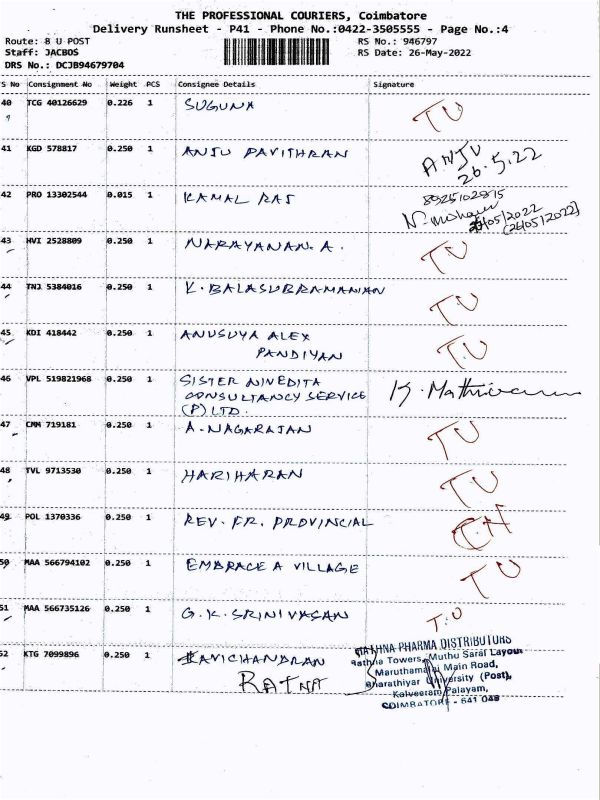 THE PROFESSIONAL COURIERS, Coimbatore
Delivery Runsheet - P41 - Phone No.:0422-3505555 - Page No.:4
Route: 8 U POST RS No.: 946797
Staff: JACBOS RS Date: 26-May-2022
DRS No.: DCJB94679704
S No Consignment No Weight PCS Consignee Details Signature
40 TCG 40126629 0.226 1 SUGUNA TU
41 KGD 578817 0.250 1 ANJU PAVITHRAN ANJU
26.5.22
42 PRO 13302544 0.015 1 KAMAL RAJ
/05/2022
(26/05/2022)
43 HVI 2528809 0.250 1 NARAYANAN.A. TU
44 TNJ 5384016 0.250 1 K.BALASUBRAMANIAN TU
45 KDI 418442 0.250 1 ANUSUYA ALEX T.U
PANDIYAN
46 VPL 519821968 0.250 1 SISTER NIVEDITA
CONSULTANCY SERVICE
(P) LTD.
47 CMM 719181 0.250 1 A.NAGARAJAN TU
48 TVL 9713530 0.250 1 HARIHARAN TU
49 POL 1370336 0.250 1 REV. FR. PROVINCIAL
50 MAA 566794102 0.250 1 EMBRACE A VILLAGE TU
51 MAA 566735126 0.250 1 G.K.SRINIVASAN T.U
52 KTG 7099896 0.250 1 RAVICHANDRAN
RATNA
RATHNA PHARMA DISTRIBUTORS
Rathna Towers, Muthu Saraf Layout
Maruthamalai Main Road,
Bharathiyar University (Post),
Kalveeram Palayam,
COIMBATORE - 641 046